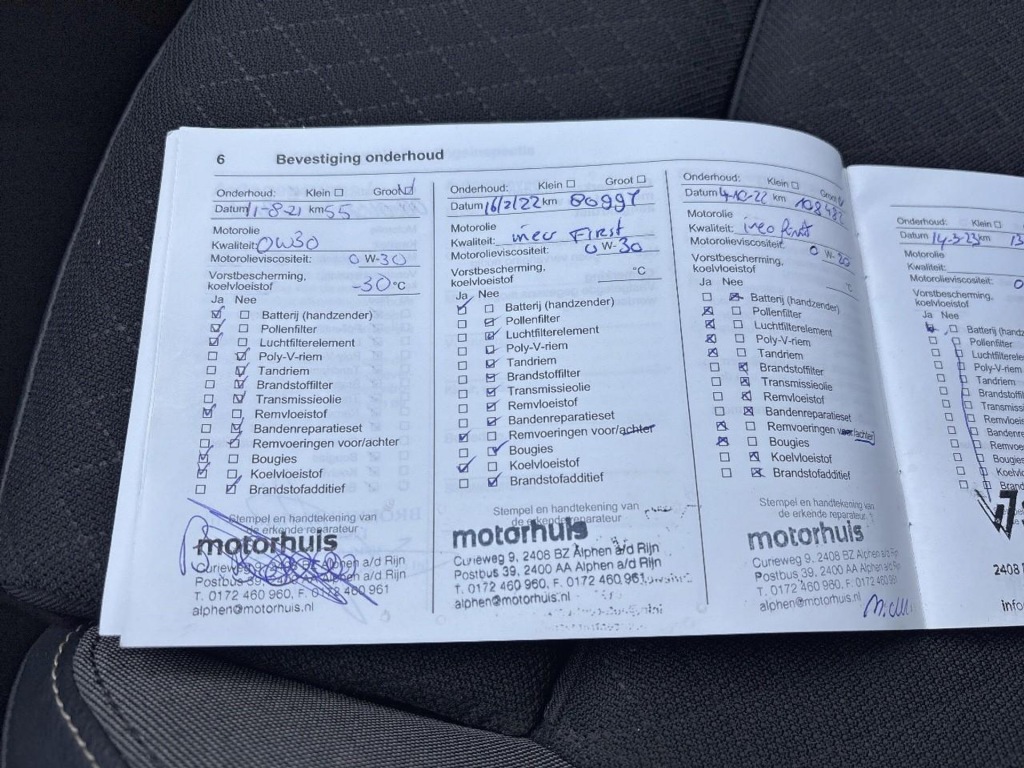 6 Bevestiging onderhoud
Onderhoud: Klein Groot
Datum 11-8-21 km 55
Motorolie
Kwaliteit: 0W30
Motorolieviscositeit: 0 W-30
Vorstbescherming,
koelvloeistof -30 °C
Ja Nee
Batterij (handzender)
Pollenfilter
Luchtfilterelement
Poly-V-riem
Tandriem
Brandstoffilter
Transmissieolie
Remvloeistof
Bandenreparatieset
Remvoeringen voor/achter
Bougies
Koelvloeistof
Brandstofadditief
Stempel en handtekening van
de erkende reparateur
motorhuis
Curieweg 9, 2408 BZ Alphen a/d Rijn
Postbus 39, 2400 AA Alphen a/d Rijn
T. 0172 460 960, F. 0172 460 961
alphen@motorhuis.nl
Onderhoud: Klein Groot
Datum 16/2/22 km 80997
Motorolie
Kwaliteit: ineo First
Motorolieviscositeit: 0 W-30
Vorstbescherming,
koelvloeistof °C
Ja Nee
Batterij (handzender)
Pollenfilter
Luchtfilterelement
Poly-V-riem
Tandriem
Brandstoffilter
Transmissieolie
Remvloeistof
Bandenreparatieset
Remvoeringen voor/achter
Bougies
Koelvloeistof
Brandstofadditief
Stempel en handtekening van
de erkende reparateur
motorhuis
Curieweg 9, 2408 BZ Alphen a/d Rijn
Postbus 39, 2400 AA Alphen a/d Rijn
T. 0172 460 960, F. 0172 460 961
alphen@motorhuis.nl
Onderhoud: Klein Groot
Datum 4-10-22 km 108482
Motorolie
Kwaliteit: ineo first
Motorolieviscositeit: 0 W-30
Vorstbescherming,
koelvloeistof °C
Ja Nee
Batterij (handzender)
Pollenfilter
Luchtfilterelement
Poly-V-riem
Tandriem
Brandstoffilter
Transmissieolie
Remvloeistof
Bandenreparatieset
Remvoeringen voor/achter
Bougies
Koelvloeistof
Brandstofadditief
Stempel en handtekening van
de erkende reparateur
motorhuis
Curieweg 9, 2408 BZ Alphen a/d Rijn
Postbus 39, 2400 AA Alphen a/d Rijn
T. 0172 460 960, F. 0172 460 961
alphen@motorhuis.nl
Onderhoud: Klein
Datum 14-3-23 km 13
Motorolie
Kwaliteit:
Motorolieviscositeit: 0
Vorstbescherming,
koelvloeistof
Ja Nee
Batterij (handz
Pollenfilter
Luchtfilterelem
Poly-V-riem
Tandriem
Brandstoffil
Transmissi
Remvloeis
Bandenre
Remvoe
Bougies
Koelvl
Brand
2408
info